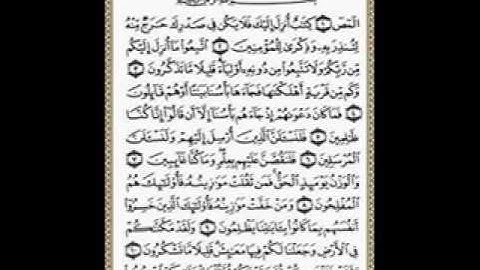 الٓمٓصٓ ١ كِتَٰبٌ أُنزِلَ إِلَيْكَ فَلَا يَكُن فِي صَدْرِكَ حَرَجٌ مِّنْهُ
لِتُنذِرَ بِهِۦ وَذِكْرَىٰ لِلْمُؤْمِنِينَ ٢ ٱتَّبِعُوا۟ مَآ أُنزِلَ إِلَيْكُم
مِّن رَّبِّكُمْ وَلَا تَتَّبِعُوا۟ مِن دُونِهِۦٓ أَوْلِيَآءَ قَلِيلًا مَّا تَذَكَّرُونَ ٣
وَكَم مِّن قَرْيَةٍ أَهْلَكْنَٰهَا فَجَآءَهَا بَأْسُنَا بَيَٰتًا أَوْ هُمْ قَآئِلُونَ
٤ فَمَا كَانَ دَعْوَىٰهُمْ إِذْ جَآءَهُم بَأْسُنَآ إِلَّآ أَن قَالُوٓا۟ إِنَّا كُنَّا
ظَٰلِمِينَ ٥ فَلَنَسْـَٔلَنَّ ٱلَّذِينَ أُرْسِلَ إِلَيْهِمْ وَلَنَسْـَٔلَنَّ
ٱلْمُرْسَلِينَ ٦ فَلَنَقُصَّنَّ عَلَيْهِم بِعِلْمٍ وَمَا كُنَّا غَآئِبِينَ ٧
وَٱلْوَزْنُ يَوْمَئِذٍ ٱلْحَقُّ فَمَن ثَقُلَتْ مَوَٰزِينُهُۥ فَأُو۟لَٰٓئِكَ هُمُ
ٱلْمُفْلِحُونَ ٨ وَمَنْ خَفَّتْ مَوَٰزِينُهُۥ فَأُو۟لَٰٓئِكَ ٱلَّذِينَ خَسِرُوٓا۟
أَنفُسَهُم بِمَا كَانُوا۟ بِـَٔايَٰتِنَا يَظْلِمُونَ ٩ وَلَقَدْ مَكَّنَّٰكُمْ
فِي ٱلْأَرْضِ وَجَعَلْنَا لَكُمْ فِيهَا مَعَٰيِشَ قَلِيلًا مَّا تَشْكُرُونَ ١٠